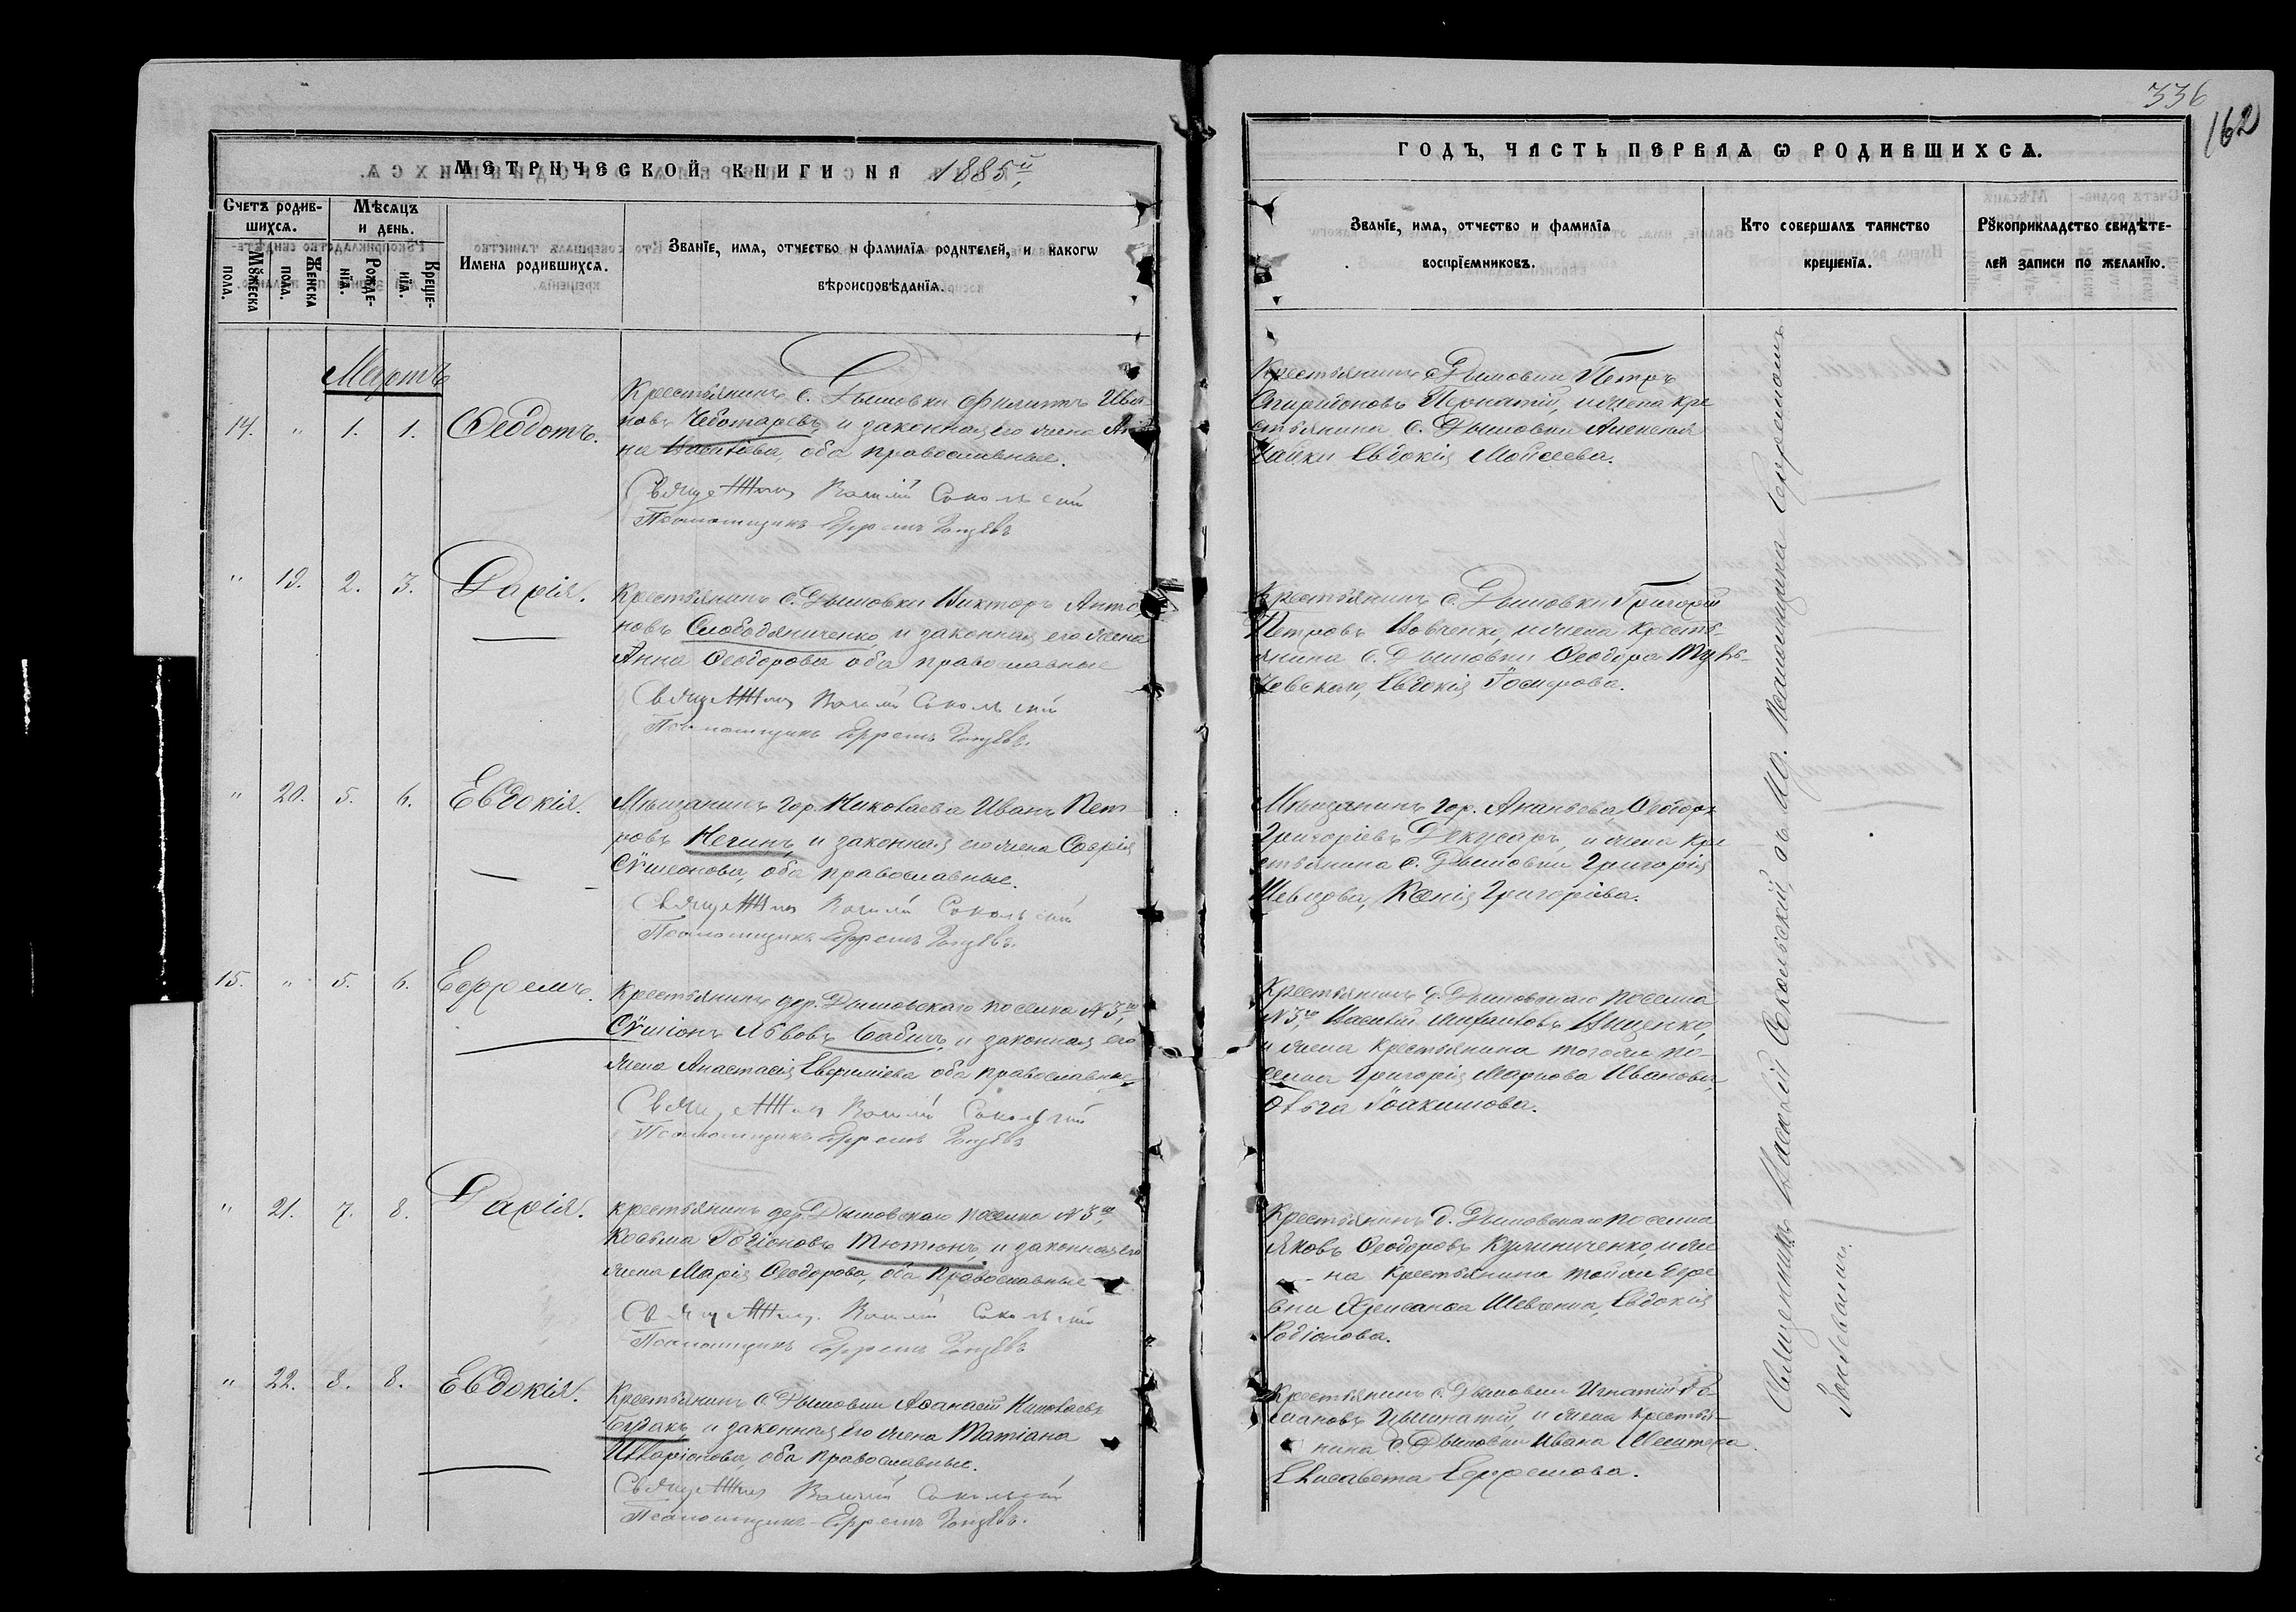 336
162
МЕТРИЧЕСКОЙ КНИГИ НА 1885й
ГОДЪ, ЧАСТЬ ПЕРВАЯ Ѡ РОДИВШИХСѦ.
Счетъ родив-
шихсѧ.
Мѣсѧцъ
и день.
Мꙋжеска
пола.
Женска
пола.
Рожде-
нїѧ.
Креще-
нїѧ.
Имена родившихсѧ.
Званїе, имѧ, отчество и фамилїѧ родителей, и какогѡ
вѣроисповѣданїѧ.
Званїе, имѧ, отчество и фамилїѧ
воспрїемниковъ.
Кто совершалъ таинство
крещенїѧ.
Рꙋкоприкладство свидѣте-
лей записи по желанїю.
Мартъ
14. " 1. 1. Ѳеодотъ.
Крестьянинъ с. Дымовки Филиппъ Ива
новъ Чеботаревъ, и законная его жена Ан
на оба православные.
Священникъ Василій Сокольскій
Псаломщикъ Ефремъ
Крестьянинъ с. Дымовки Петръ
Спиридоновъ Игнатій, и жена кре
стьянина с. Дымовки Алексѣя
Чайки Евдокія Мойсеева.
" 19. 2. 3. Дарія.
Крестьянинъ с. Дымовки Викторъ Анто
новъ Слободяниченко, и законная его жена
Анна Ѳеодорова оба православные
Священникъ Василій Сокольскій
Псаломщикъ Ефремъ
Крестьянинъ с. Дымовки Григорій
Петровъ Вовченко, и жена кресть-
янина с. Дымовки Ѳеодора
Евдокія
" 20. 5. 6. Евдокія.
Мѣщанинъ гор. Николаева Иванъ Пет
ровъ Негинъ, и законная его жена Софія
Сѵмеонова, оба православные.
Священникъ Василій Сокольскій
Псаломщикъ Ефремъ
Мѣщанинъ гор. Ананьева Ѳеодоръ
Григоріевъ Декусаръ, и жена кре
стьянина с. Дымовки Григорія
Шевцова, Ксенія Григоріева.
15. " 5. 6. Ефремъ.
Крестьянинъ дер. Дымовскаго поселка № 3го,
Сѵмеонъ Львовъ Бабичъ, и законная его
жена Анастасія Евфиміева оба православные
Священникъ Василій Сокольскій
Псаломщикъ Ефремъ
Крестьянинъ д. Дымовскаго поселка
№ 3го, Василій Ищенко,
и жена крестьянина тогоже по-
селка Григорія Маркова Иванова,
Ольга Іоакимова.
" 21. 7. 8. Дарія.
Крестьянинъ дер. Дымовскаго поселка № 3го,
Косьма Родіоновъ Тютюнъ, и законная его
жена Марія Ѳеодорова, оба православные
Священникъ Василій Сокольскій
Псаломщикъ Ефремъ
Крестьянинъ д. Дымовскаго поселка
Яковъ Ѳеодоровъ Кулиниченко, и же
на крестьянина тойже дере
вни Хрисанѳа Шевченка, Евдокія
Родіонова.
" 22. 8. 8. Евдокія.
Крестьянинъ с. Дымовки Аѳанасій Николаевъ
Бурлакъ, и законная его жена Татіана
Илларіонова, оба православные.
Священникъ Василій Сокольскій
Псаломщикъ Ефремъ
Крестьянинъ с. Дымовки Игнатій Ро-
мановъ и жена крестья-
нина с. Дымовки Ивана
Елисавета Ефремова.
Священникъ Василій Сокольскій, съ И.д. Псаломщика Ефремомъ